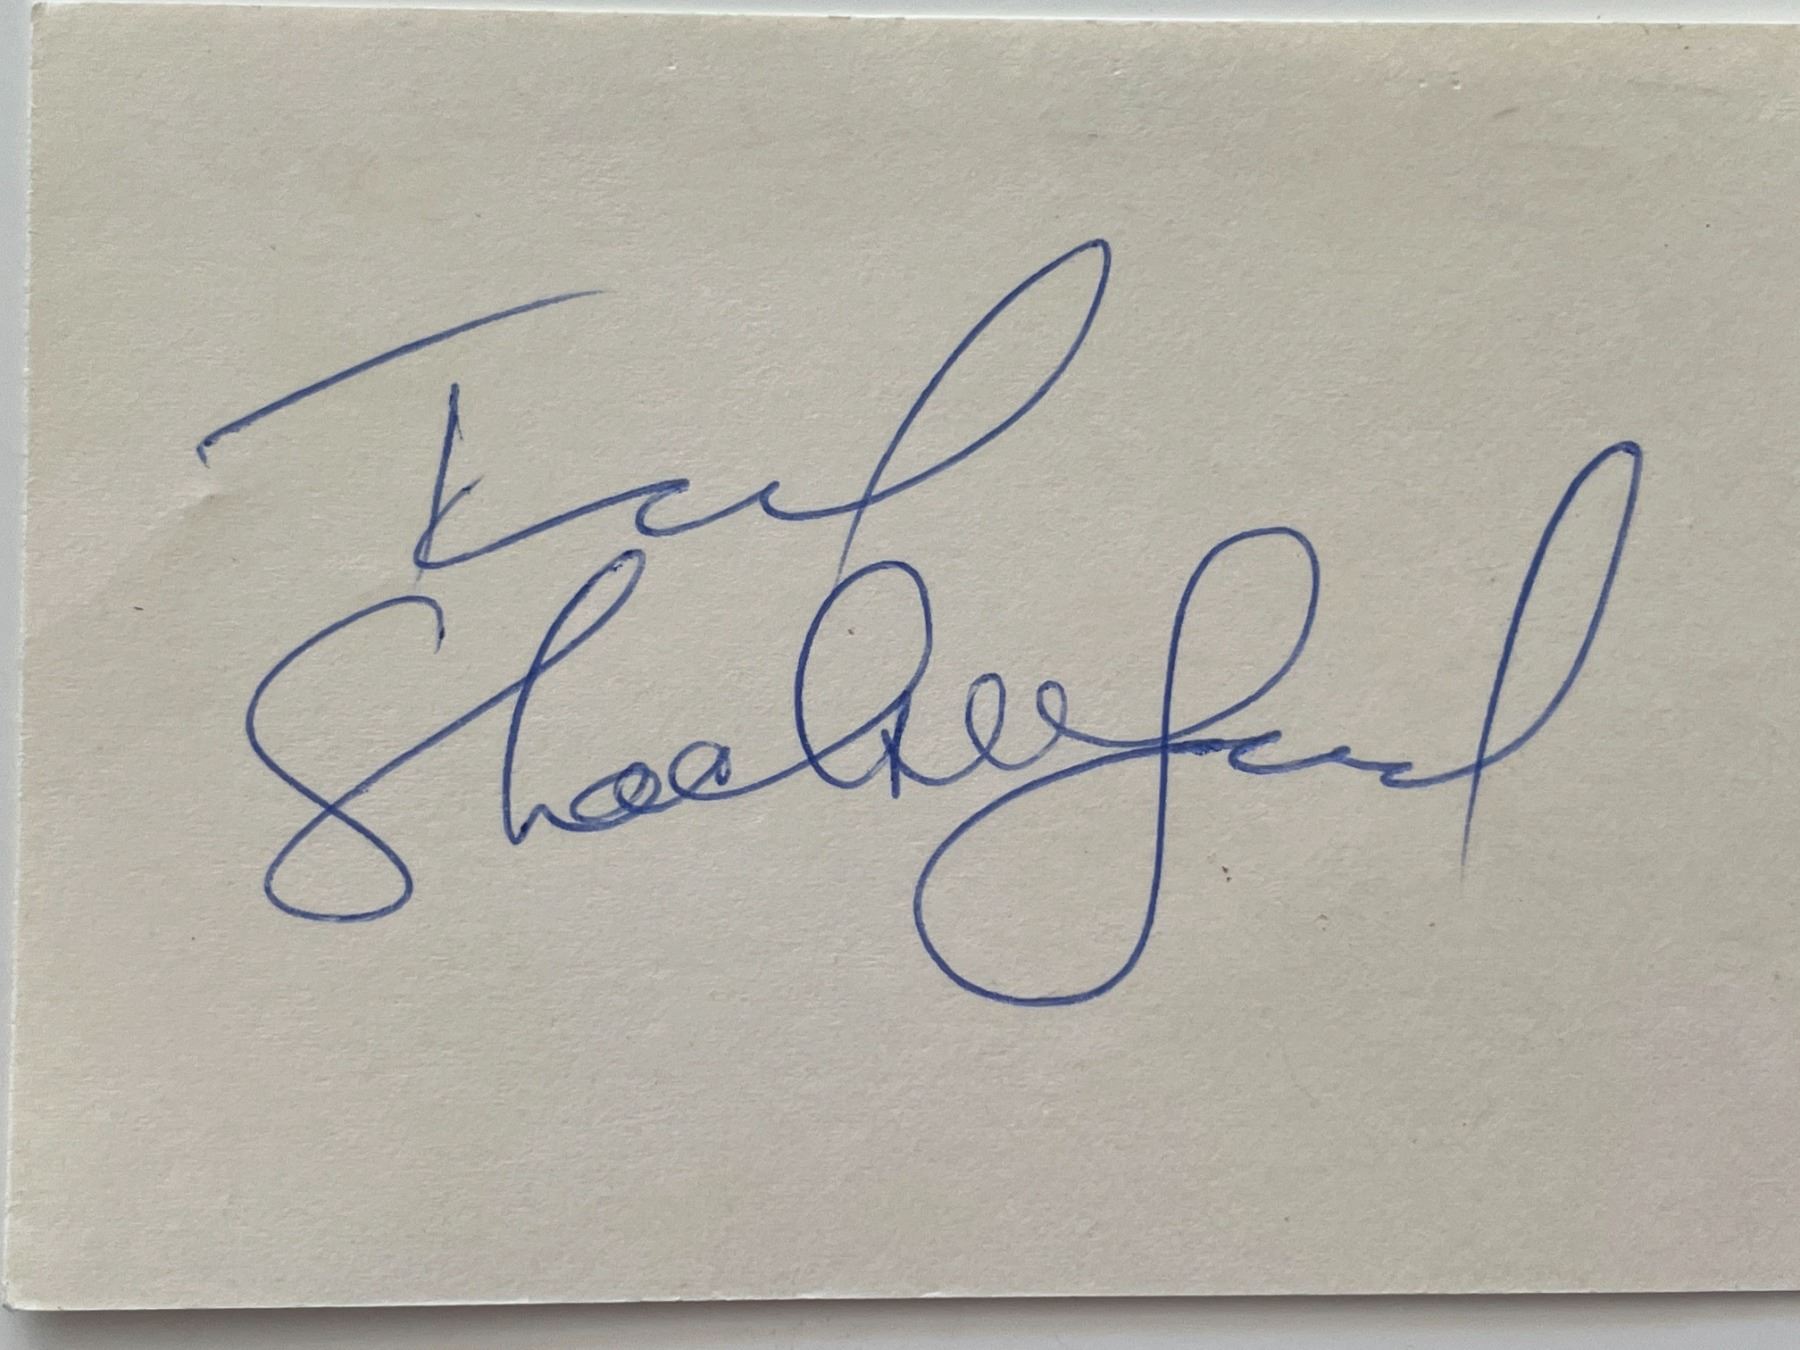 Ted
Shackelford